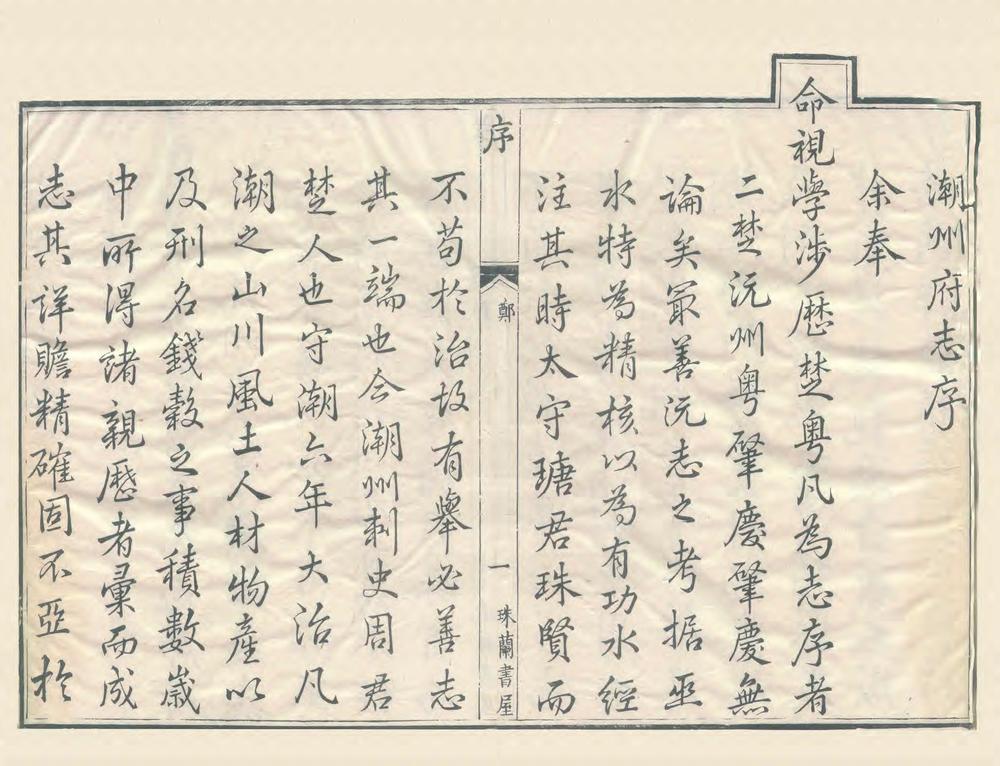 潮州府志序
余奉
命視學涉歷楚粵凡為志序者
二楚沅州粵肇慶肇慶無
論矣冣善沅志之考据巫
水特為精核以為有功水經
注其時太守瑭君珠賢而
序
鄭
一
珠蘭書屋
不苟於治故有舉必善志
其一端也今潮州刺史周君
楚人也守潮六年大治凡
潮之山川風土人材物產以
及刑名錢穀之事積數歲
中所得諸親歷者彙而成
志其詳贍精確固不亞於